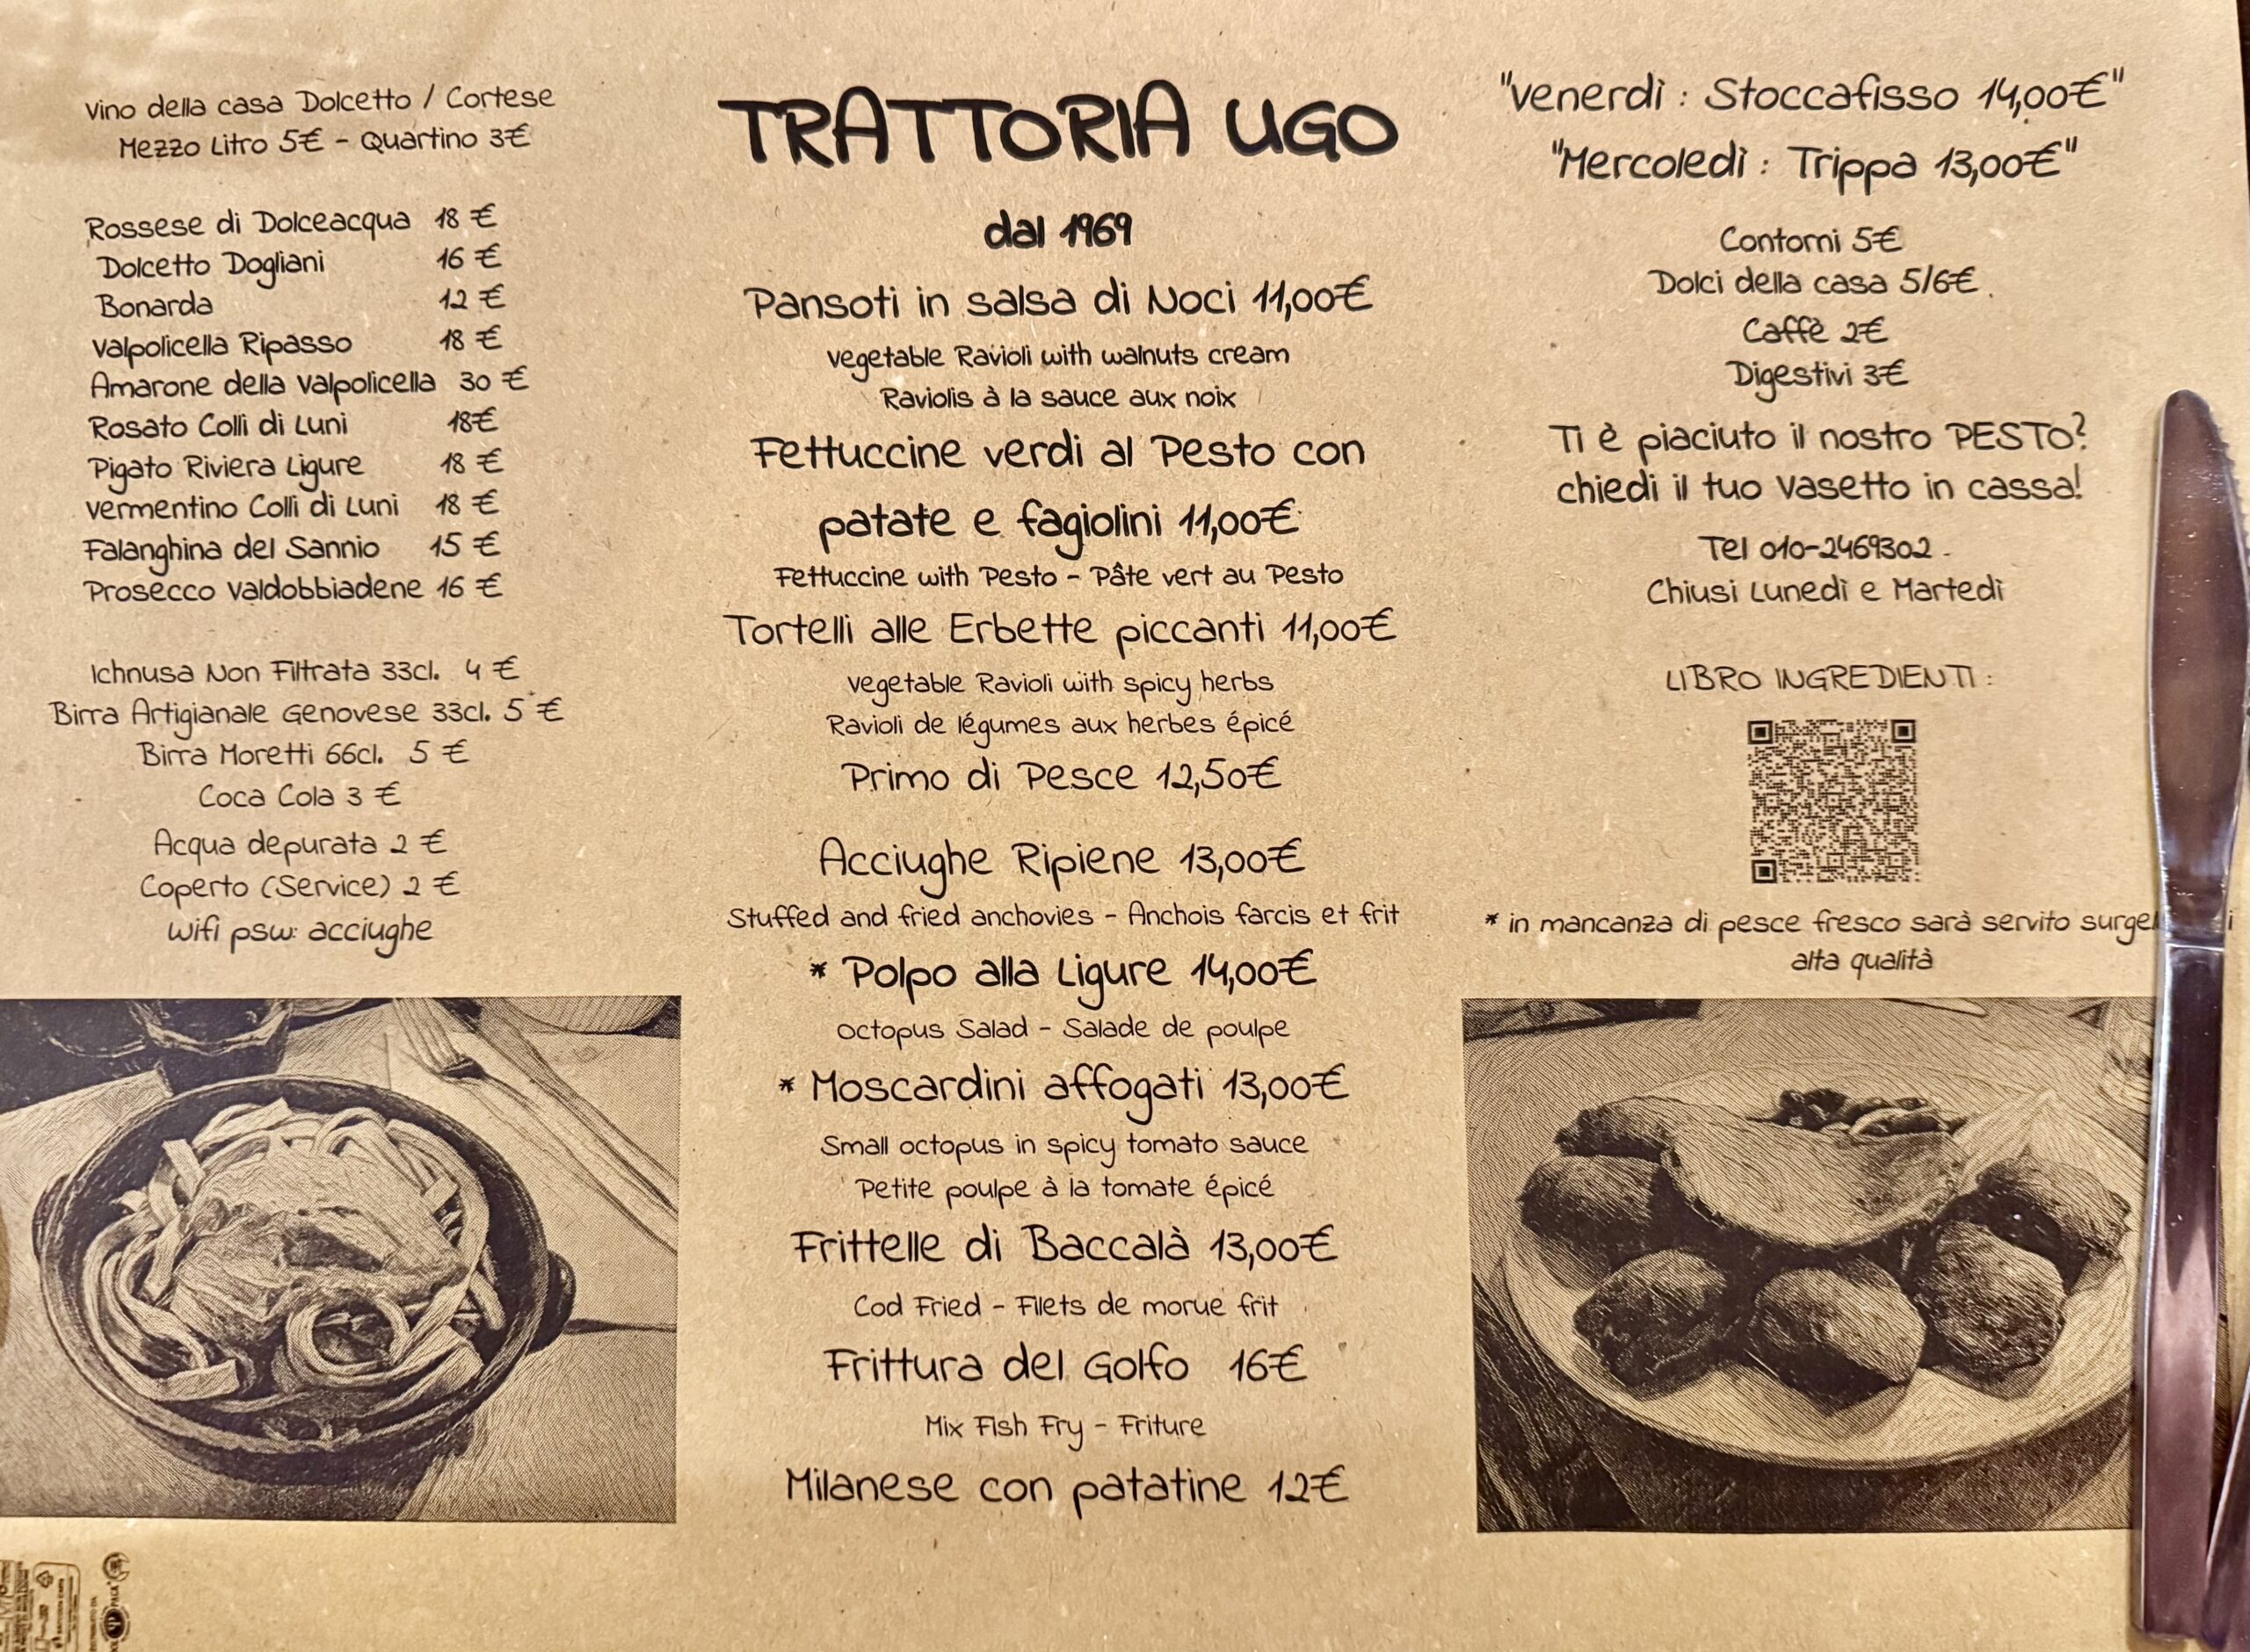 Vino della casa Dolcetto / Cortese
Mezzo Litro 5€ - Quartino 3€
Rossese di Dolceacqua 18 €
Dolcetto Dogliani 16 €
Bonarda 12 €
Valpolicella Ripasso 18 €
Amarone della Valpolicella 30 €
Rosato Colli di Luni 18€
Pigato Riviera Ligure 18 €
Vermentino Colli di Luni 18 €
Falanghina del Sannio 15 €
Prosecco Valdobbiadene 16 €
Ichnusa Non Filtrata 33cl. 4 €
Birra Artigianale Genovese 33cl. 5 €
Birra Moretti 66cl. 5 €
Coca Cola 3 €
Acqua depurata 2 €
Coperto (Service) 2 €
Wifi psw: acciughe
TRATTORIA UGO
dal 1969
Pansoti in salsa di Noci 11,00€
Vegetable Ravioli with walnuts cream
Raviolis à la sauce aux noix
Fettuccine verdi al Pesto con
patate e fagiolini 11,00€
Fettuccine with Pesto - Pâte vert au Pesto
Tortelli alle Erbette piccanti 11,00€
Vegetable Ravioli with spicy herbs
Ravioli de légumes aux herbes épicé
Primo di Pesce 12,50€
Acciughe Ripiene 13,00€
Stuffed and fried anchovies - Anchois farcis et frit
* Polpo alla Ligure 14,00€
Octopus Salad - Salade de poulpe
* Moscardini affogati 13,00€
Small octopus in spicy tomato sauce
Petite poulpe à la tomate épicé
Frittelle di Baccalà 13,00€
Cod Fried - Filets de morue frit
Frittura del Golfo 16€
Mix Fish Fry - Friture
Milanese con patatine 12€
"Venerdì : Stoccafisso 14,00€"
"Mercoledì : Trippa 13,00€"
Contorni 5€
Dolci della casa 5/6€
Caffè 2€
Digestivi 3€
Ti è piaciuto il nostro PESTO?
chiedi il tuo Vasetto in cassa!
Tel 010-2469302
Chiusi Lunedì e Martedì
LIBRO INGREDIENTI :
* in mancanza di pesce fresco sarà servito
alta qualità